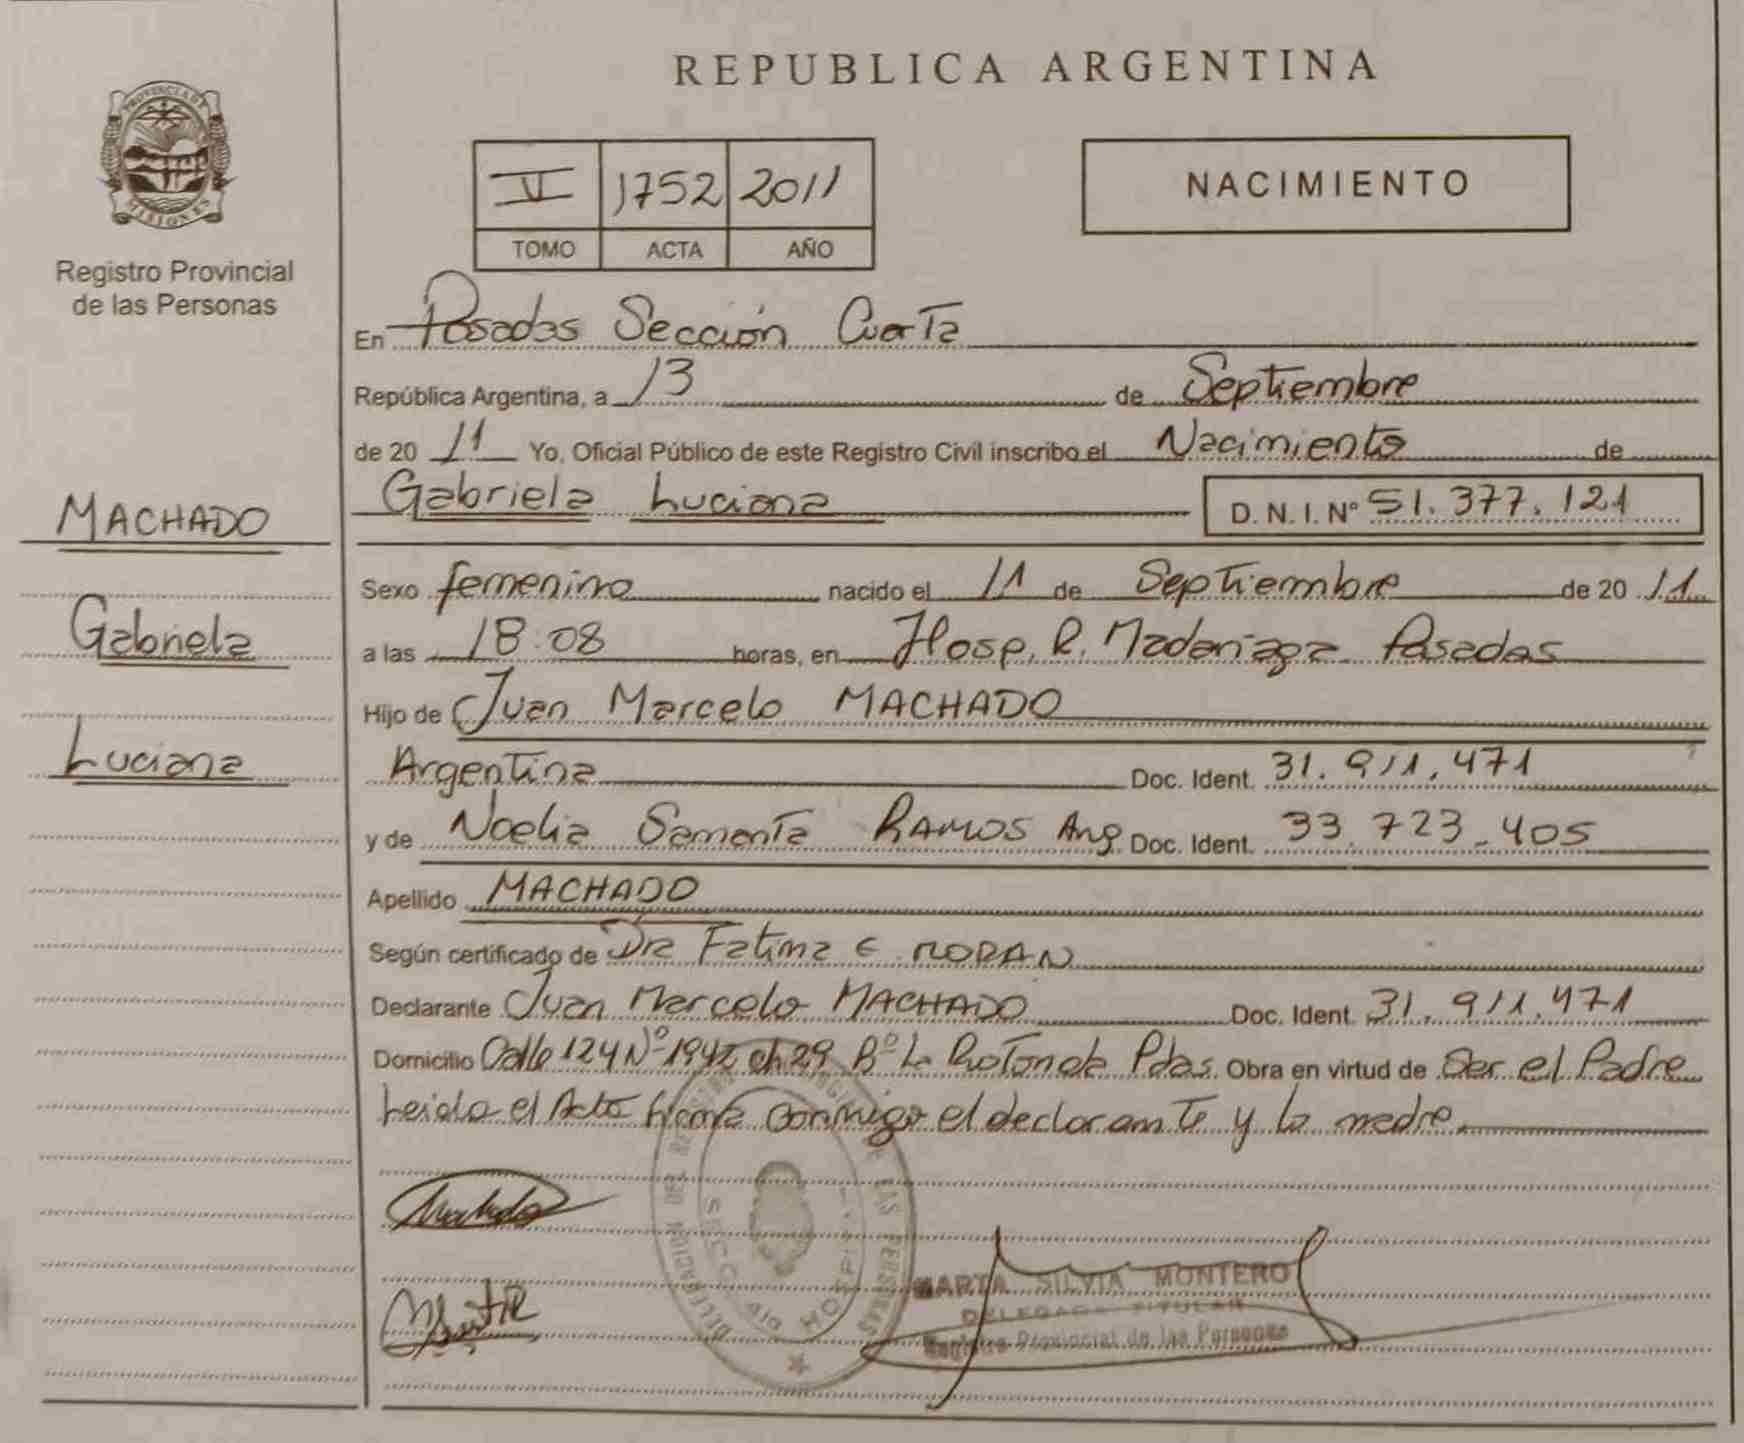 REPUBLICA ARGENTINA
PROVINCIA DE
MISIONES
Registro Provincial
de las Personas
VI 1752 2011
TOMO ACTA AÑO
NACIMIENTO
En Posadas Sección Cuarta
República Argentina, a 13 de Septiembre
de 20 11 Yo, Oficial Público de este Registro Civil inscribo el Nacimiento de
Gabriela Luciana D. N. I. Nº 51.377.121
MACHADO
Gabriela
Luciana
Sexo femenino nacido el 11 de Septiembre de 20 11
a las 18:08 horas, en Hosp. R. Madariaga Posadas
Hijo de Juan Marcelo MACHADO
Argentina Doc. Ident. 31.911.471
y de Noelia Samanta RAMOS Arg. Doc. Ident. 33.723.405
Apellido MACHADO
Según certificado de Dra Fatima E
Declarante Juan Marcelo MACHADO Doc. Ident. 31.911.471
Domicilio Calle 124 Nº 1942 ch 29 Bº La Rotonda Pdas. Obra en virtud de Ser el Padre
Leida el Acta firma conmigo el declarante y la madre
Machado
DELEGACION DEL REGISTRO PROVINCIAL DE LAS PERSONAS
SECC 4ta HOSPITAL
MARTA SILVIA MONTERO
DELEGADA TITULAR
Registro Provincial de las Personas